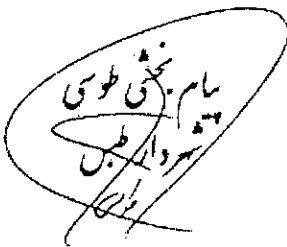 پیام بخشی طوسی
شهردار طبس